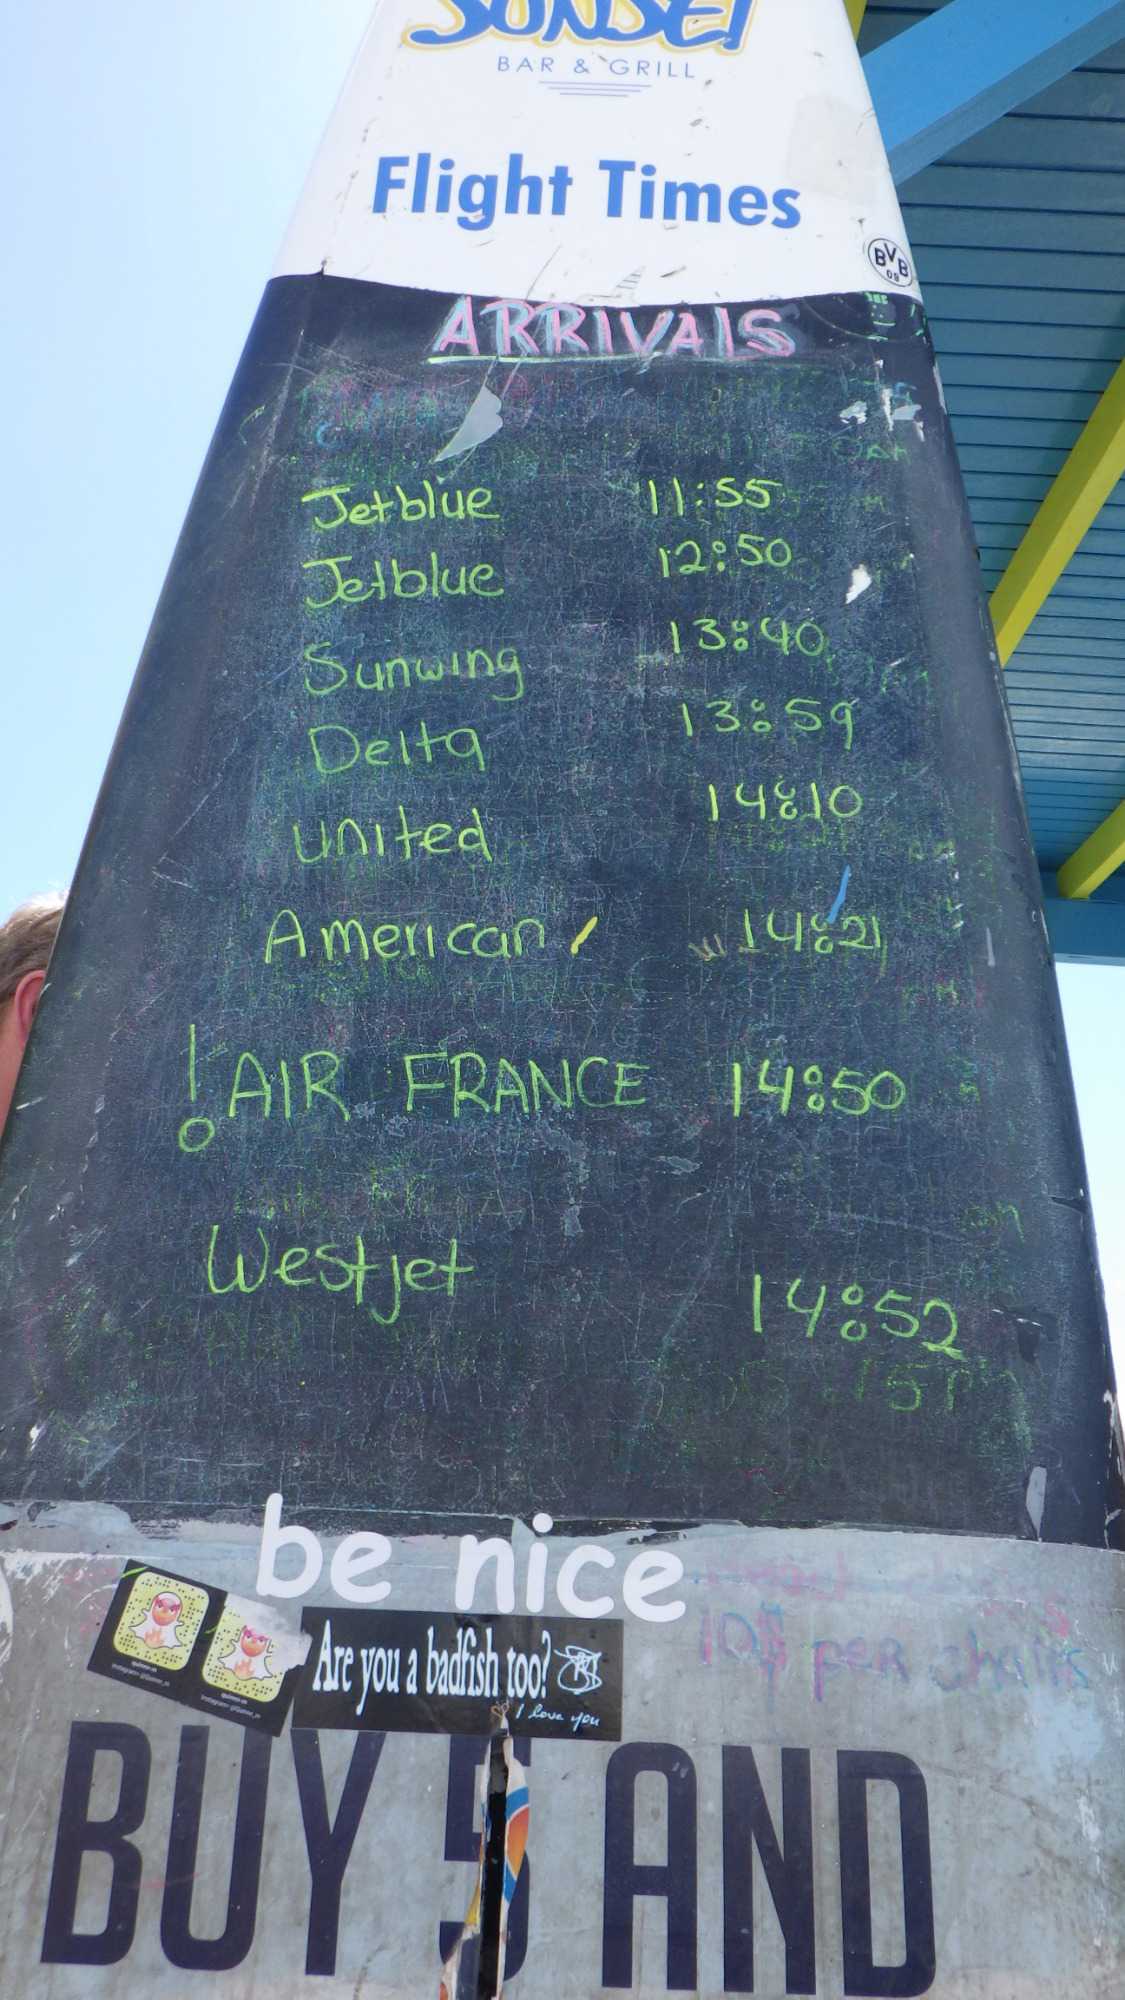 SUNSET
BAR & GRILL
Flight Times
BVB
09
ARRIVALS
Jetblue 11:55
Jetblue 12:50
Sunwing 13:40
Delta 13:59
United 14:10
American 14:21
! AIR FRANCE 14:50
Westjet 14:52
be nice
Are you a badfish too?
I love you
10$ per
BUY 5 AND